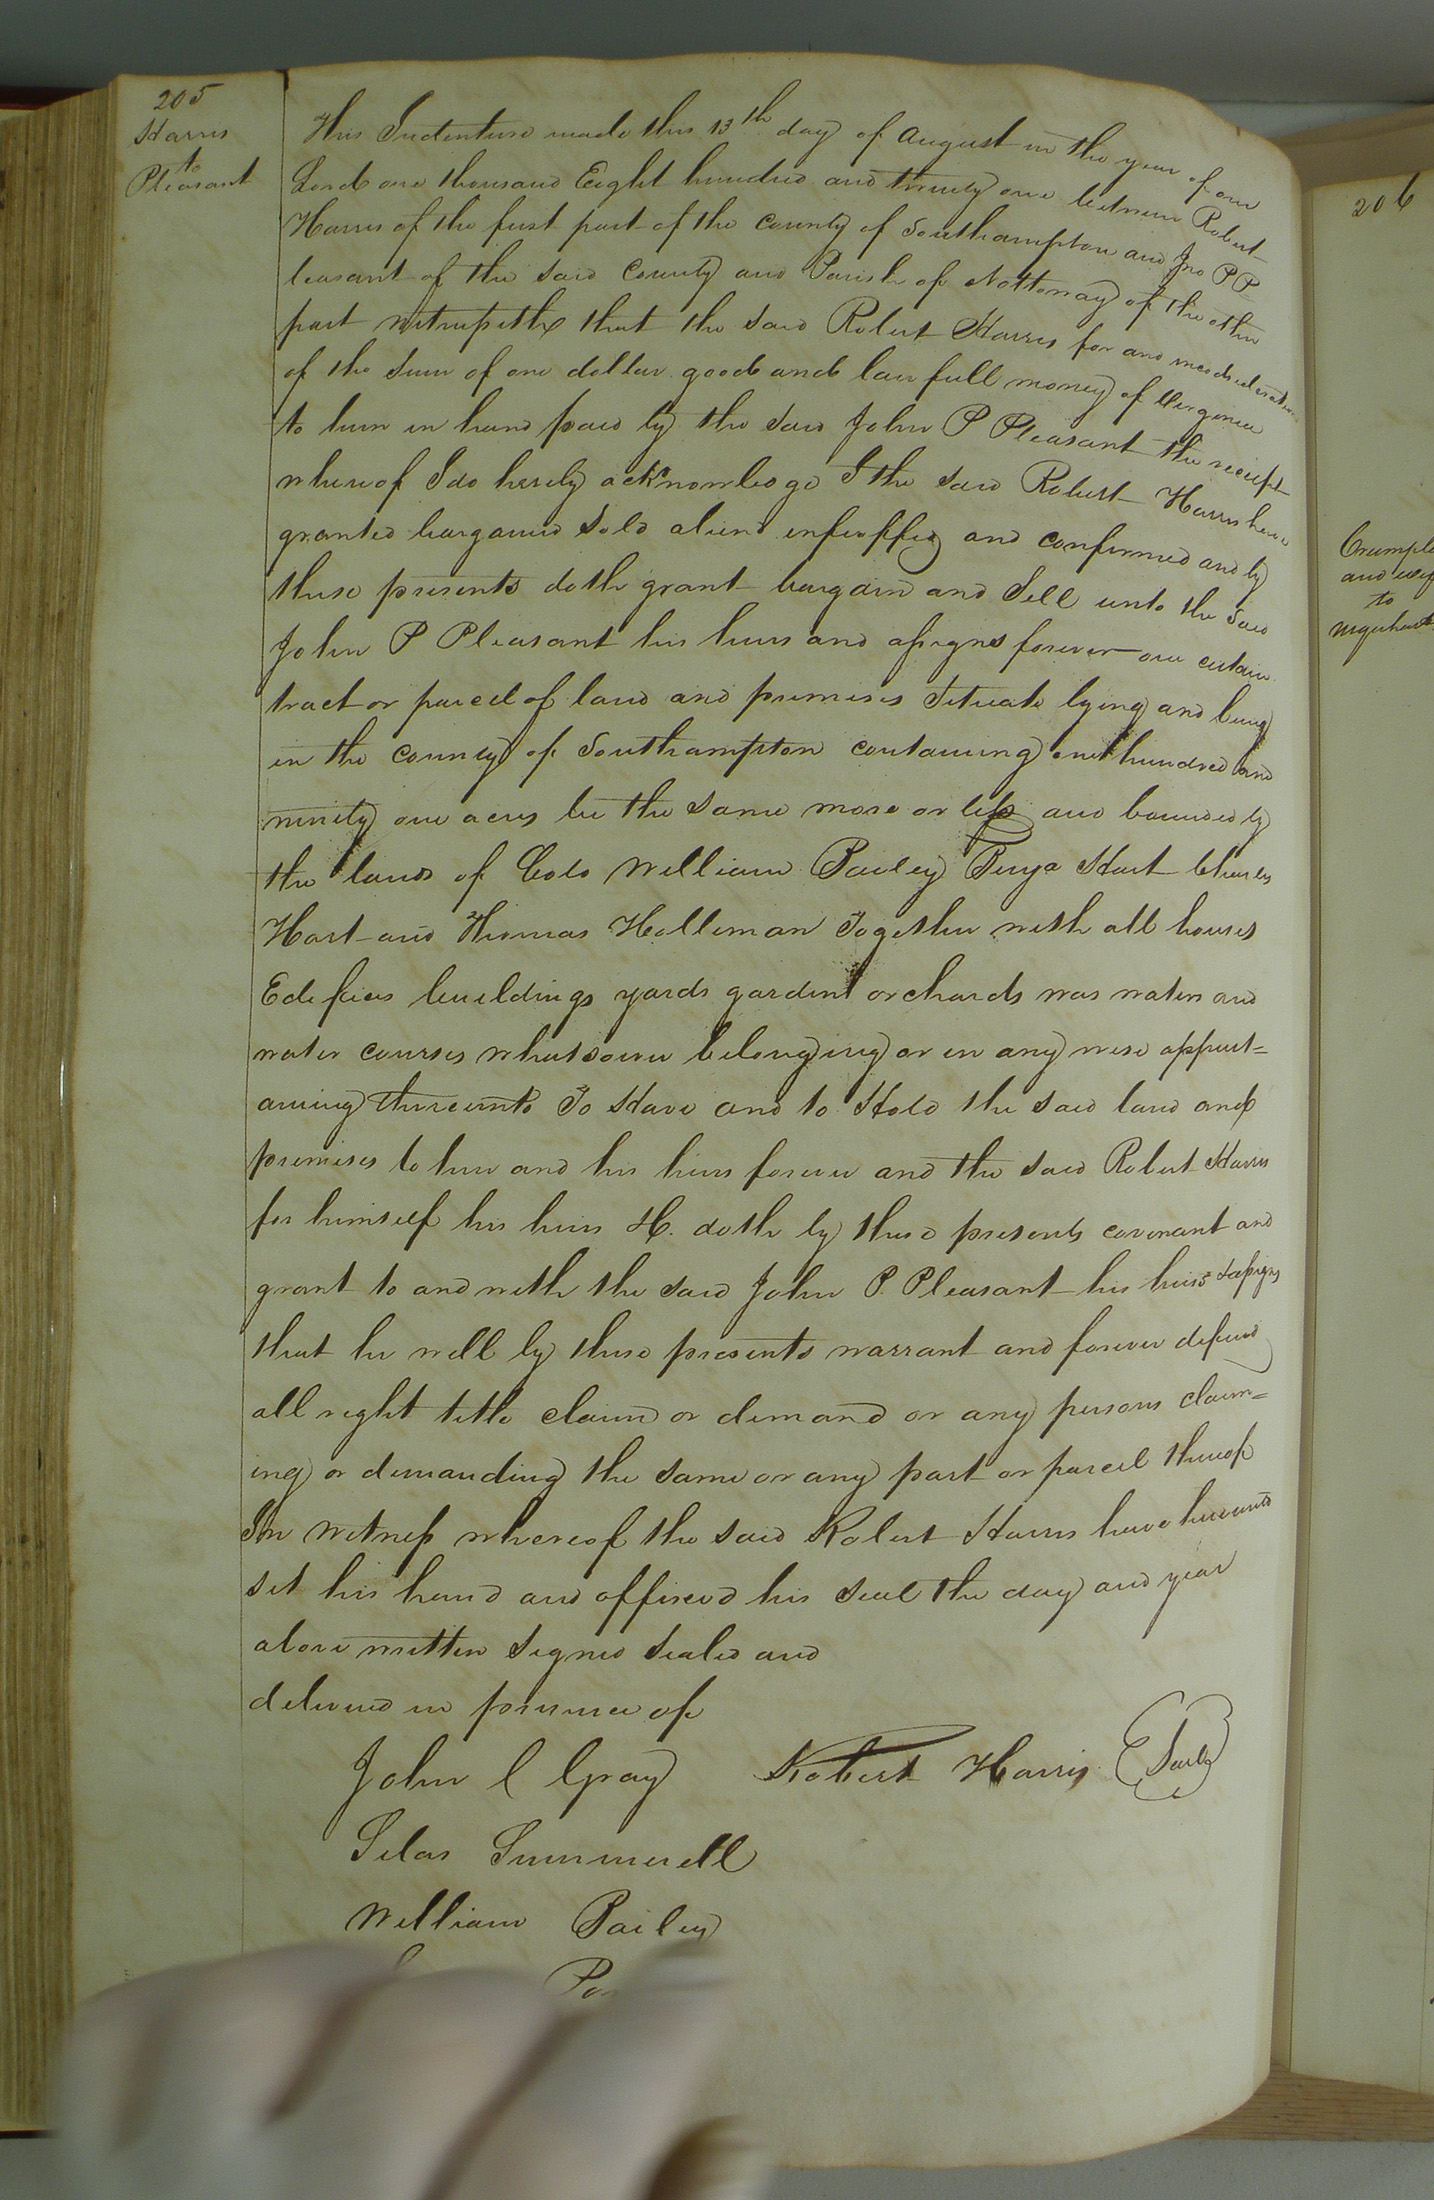 205
Harris
to
Pleasant
This Indenture made this 13th day of August in the year of our
Lord one thousand Eight hundred and twenty one between Robert
Harris of the first part of the county of Southampton and Jno P P
leasant of the said County and Parish of Nottoway of the other
part witnesseth that the said Robert Harris for and
of the Sum of one dollar good and law full money of Virginia
to him in hand paid by the said John P Pleasant the receipt
whereof I do hereby acknowledge I the said Robert Harris have
granted bargained Sold aliend enfeoffed and confirmed and by
these presents doth grant bargain and Sell unto the said
John P Pleasant his heirs and assigns forever one certain
tract or parcel of land and premises Situate lying and being
in the county of Southampton containing one hundred and
ninety one acres be the same more or less and bounded by
the lands of Colo William Bailey Benja Hart Charles
Hart and Thomas Holleman Together with all houses
Edifices buildings yards gardens orchards was waters and
water courses whatsoever belonging or in any wise appert=
aining thereunto To Have and to Hold the said land and
premises to him and his heirs forever and the said Robert Harris
for himself his heirs &c. doth by these presents covenant and
grant to and with the said John P. Pleasant his heirs & assigns
that he will by these presents warrant and forever defend
all right title claim or demand or any persons claim=
ing or demanding the same or any part or parcel thereof
In witness whereof the said Robert Harris have hereunto
set his hand and affixed his seal the day and year
above written Signed Sealed and
delivered in presence of
John C Gray Robert Harris Seal
Silas Summerell
William Bailey
206
and wife
to
Urquhart